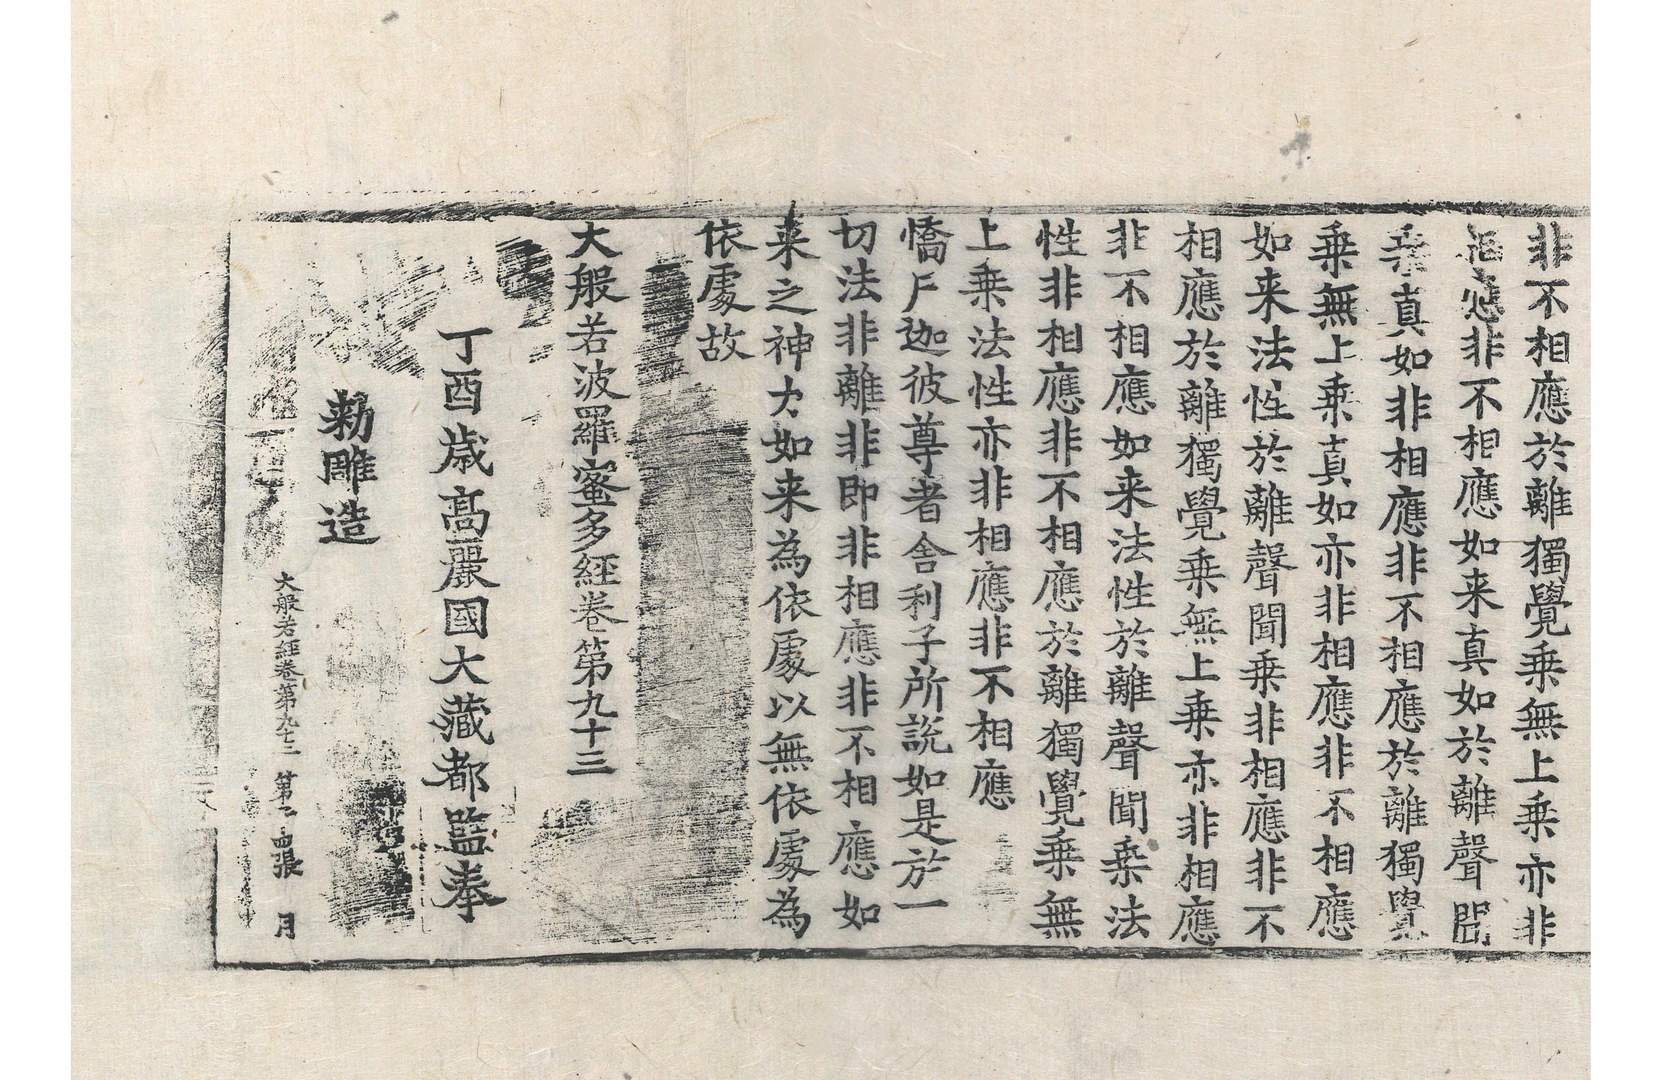 非不相應於離獨覺乗無上乗亦非
相應非不相應如来真如於離聲聞
乗真如非相應非不相應於離獨覺
乗無上乗真如亦非相應非不相應
如来法性於離聲聞乗非相應非不
相應於離獨覺乗無上乗亦非相應
非不相應如来法性於離聲聞乗法
性非相應非不相應於離獨覺乗無
上乗法性亦非相應非不相應
憍尸迦彼尊者舍利子所說如是於一
切法非離非即非相應非不相應如
来之神力如来為依處以無依處為
依處故
大般若波羅蜜多經卷第九十三
丁酉歲高麗國大藏都監奉
勅雕造
大般若經卷第九十三 第 張 月